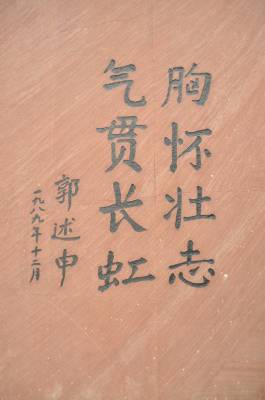 胸怀壮志
气贯长虹
郭述申
一九八九年十二月